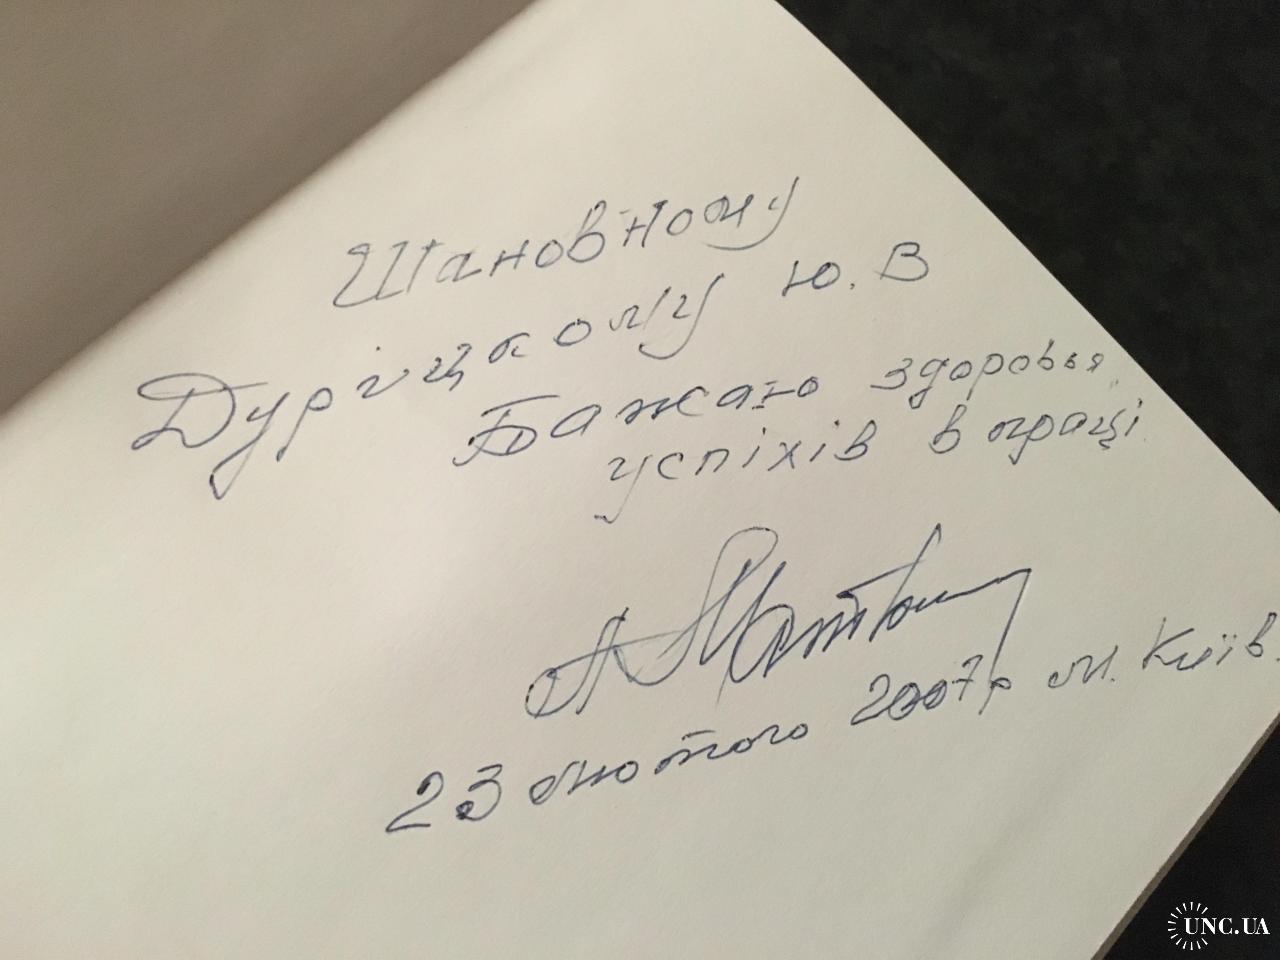 Шановному
Дуріцкому Ю. В
Бажаю здоровья,
успіхів в праці
23 лютого 2007р м. Київ.
UNC.UA